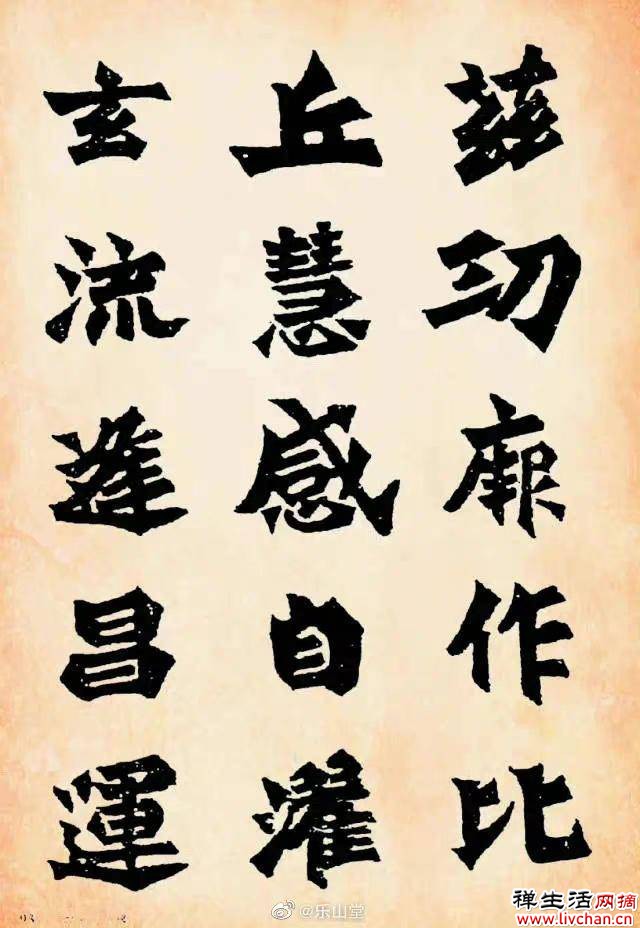 茲㓛厥作比
丘慧感自濯
玄流逢昌運
@乐山堂
禅生活网摘
www.livchan.com